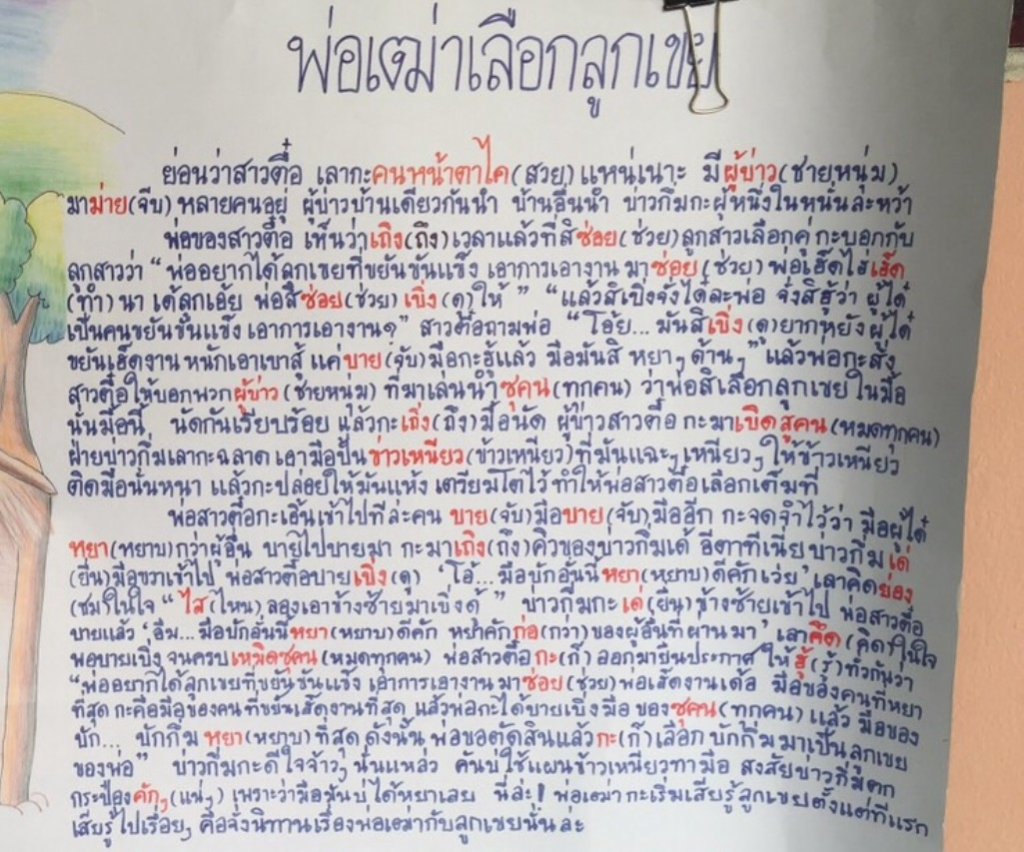 พ่อเฒ่าเลือกลูกเขย
ย่อนว่าสาวตื้อ เลากะคนหน้าตาไค(สวย) แหน่เนาะ มีผู้บ่าว(ชายหนุ่ม)
มาม่าย(จีบ) หลายคนอยู่ ผู้บ่าวบ้านเดียวกันนำ บ้านอื่นนำ บ่าวกิ่มกะผู้หนึ่งในหนั่นล่ะหว้า
พ่อของสาวตื้อ เห็นว่าเถิง(ถึง)เวลาแล้วที่สิซ่อย(ช่วย)ลูกสาวเลือกคู่ กะบอกกับ
ลูกสาวว่า “พ่ออยากได้ลูกเขยที่ขยันขันแข็ง เอาการเอางาน มาซ่อย(ช่วย)พ่อเฮ็ดไฮ่เฮ็ด
(ทำ)นา เด้ลูกเอ้ย พ่อสิซ่อย(ช่วย) เบิ่ง(ดู)ให้” “แล้วสิเบิ่งจั่งได๋ล่ะพ่อ จั่งสิฮู้ว่า ผู้ได๋
เป็นคนขยันขันแข็ง เอาการเอางาน?” สาวตื้อถามพ่อ “โอ้ย... มันสิเบิ่ง(ดู)ยากหยัง ผู้ได๋
ขยันเฮ็ดงาน หนักเอาเบาสู้ แค่บาย(จับ)มือกะฮู้แล้ว มือมันสิ หยาๆ ด้านๆ” แล้วพ่อกะสั่ง
สาวตื้อให้บอกพวกผู้บ่าว(ชายหนุ่ม) ที่มาเล่นนำซุคน(ทุกคน) ว่าพ่อสิเลือกลูกเขยในมื้อ
นั่นมื้อนี้ นัดกันเรียบร้อย แล้วกะเถิง(ถึง)มื้อนัด ผู้บ่าวสาวตื้อ กะมาเบิดสูคน(หมดทุกคน)
ฝ่ายบ่าวกิ่มเลากะฉลาด เอามือปั้นข่าวเหนียว(ข้าวเหนียว)ที่มันแฉะๆ เหนียวๆ ให้ข้าวเหนียว
ติดมือนั่นหนา แล้วกะปล่อยให้มันแห้ง เตรียมโตไว้ ทำให้พ่อสาวตื้อเลือกเต็มที่
พ่อสาวตื้อกะเอิ้นเข้าไปทีล่ะคน บาย(จับ)มือบาย(จับ)มืออีก กะจดจำไว้ว่า มือผู้ได๋
หยา(หยาบ)กว่าผู้อื่น บายไปบายมา กะมาเถิง(ถึง)คิวของบ่าวกิ่มเด้ อีตาทีเนี่ย บ่าวกิ่ม เด่
(ยื่น)มือขวาเข้าไป พ่อสาวตื้อบาย เบิ่ง(ดู) ‘โอ้... มือบักอันนี้หยา(หยาบ)ดีคักเว่ย’ เลาคิดย่อง
(ชม)ในใจ “ไส(ไหน) ลองเอาข้างซ้ายมาเบิ่งดุ้” บ่าวกิ่มกะเด่(ยื่น)ข้างซ้ายเข้าไป พ่อสาวตื้อ
บายแล้ว ‘อืม... มือบักอันนี้หยา(หยาบ)ดีคัก หยาคักก่อ(กว่า)ของผู้อื่นที่ผ่านมา’ เลาคึด(คิด)ในใจ
พอบายเบิ่ง จนครบเหมิดซุคน(หมดทุกคน) พ่อสาวตื้อกะ(ก็) ออกมายืนประกาศ ให้ฮู้(รู้)ทั่วกันว่า
“พ่ออยากได้ลูกเขยที่ขยันขันแข็ง เอาการเอางาน มาซ่อย(ช่วย)พ่อเฮ็ดงานเด้อ มือของคนที่หยา
ที่สุด กะคือมือของคนที่ขยันเฮ็ดงานที่สุด แล้วพ่อกะได้บายเบิ่งมือ ของซุคน(ทุกคน) แล้ว มือของ
บัก... บักกิ่ม หยา(หยาบ) ที่สุด ดังนั้น พ่อขอตัดสินแล้วกะ(ก็)เลือก บักกิ่มมาเป็นลูกเขย
ของพ่อ” บ่าวกิ่มกะดีใจจ้าวๆ นั่นแหล่ว คันบ่ใช้แผนข้าวเหนียวทามือ สงสัยบ่าวกิ่มตก
กระป๋องคักๆ(แน่ๆ) เพราะว่ามือมันบ่ได้หยาเลย นี่ล่ะ! พ่อเฒ่า กะเริ่มเสียรู้ลูกเขยตั้งแต่ทีแรก
เสียรู้ไปเรื่อยๆ คือจั่งนิทานเรื่องพ่อเฒ่ากับลูกเขยนั่นล่ะ